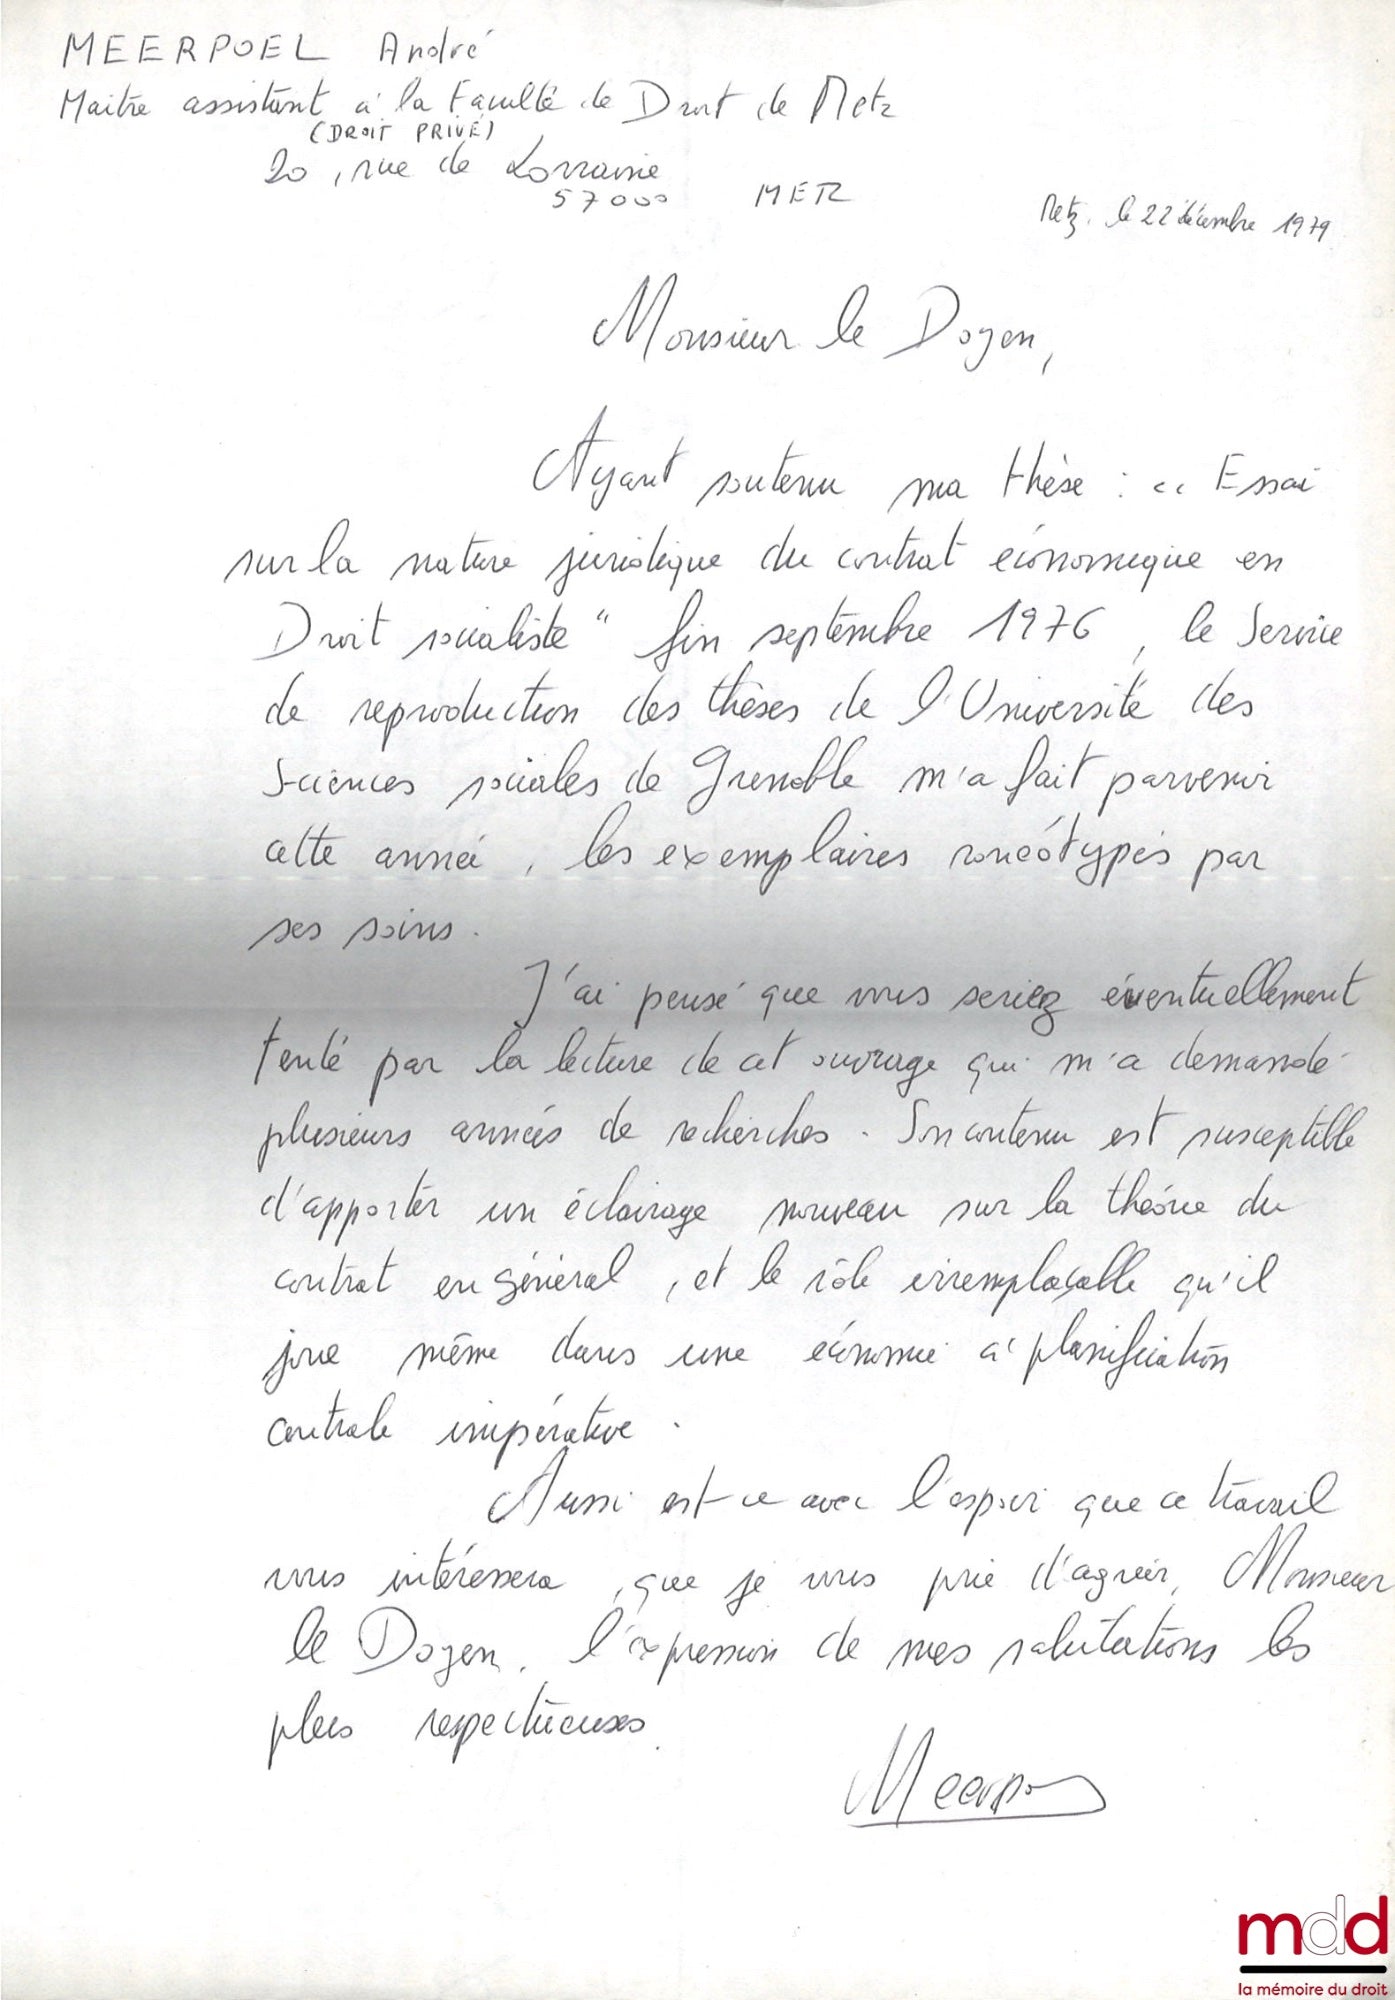 MEERPOEL André
Maitre assistant à la Faculté de Droit de Metz
(DROIT PRIVÉ)
20, rue de Lorraine
57000 METZ
Metz, le 22 décembre 1979
Monsieur le Doyen,
Ayant soutenu ma thèse : "Essai
sur la nature juridique du contrat économique en
Droit socialiste" fin septembre 1976, le Service
de reproduction des thèses de l'Université des
Sciences sociales de Grenoble m'a fait parvenir
cette année, les exemplaires ronéotypés par
ses soins.
J'ai pensé que vous seriez éventuellement
tenté par la lecture de cet ouvrage qui m'a demandé
plusieurs années de recherches. Son contenu est susceptible
d'apporter un éclairage nouveau sur la théorie du
contrat en général, et le rôle irremplaçable qu'il
joue même dans une économie à planification
centrale impérative.
Aussi est-ce avec l'espoir que ce travail
vous intéressera, que je vous prie d'agréer, Monsieur
le Doyen, l'expression de mes salutations les
plus respectueuses.
Meerpoel
mdd
la mémoire du droit